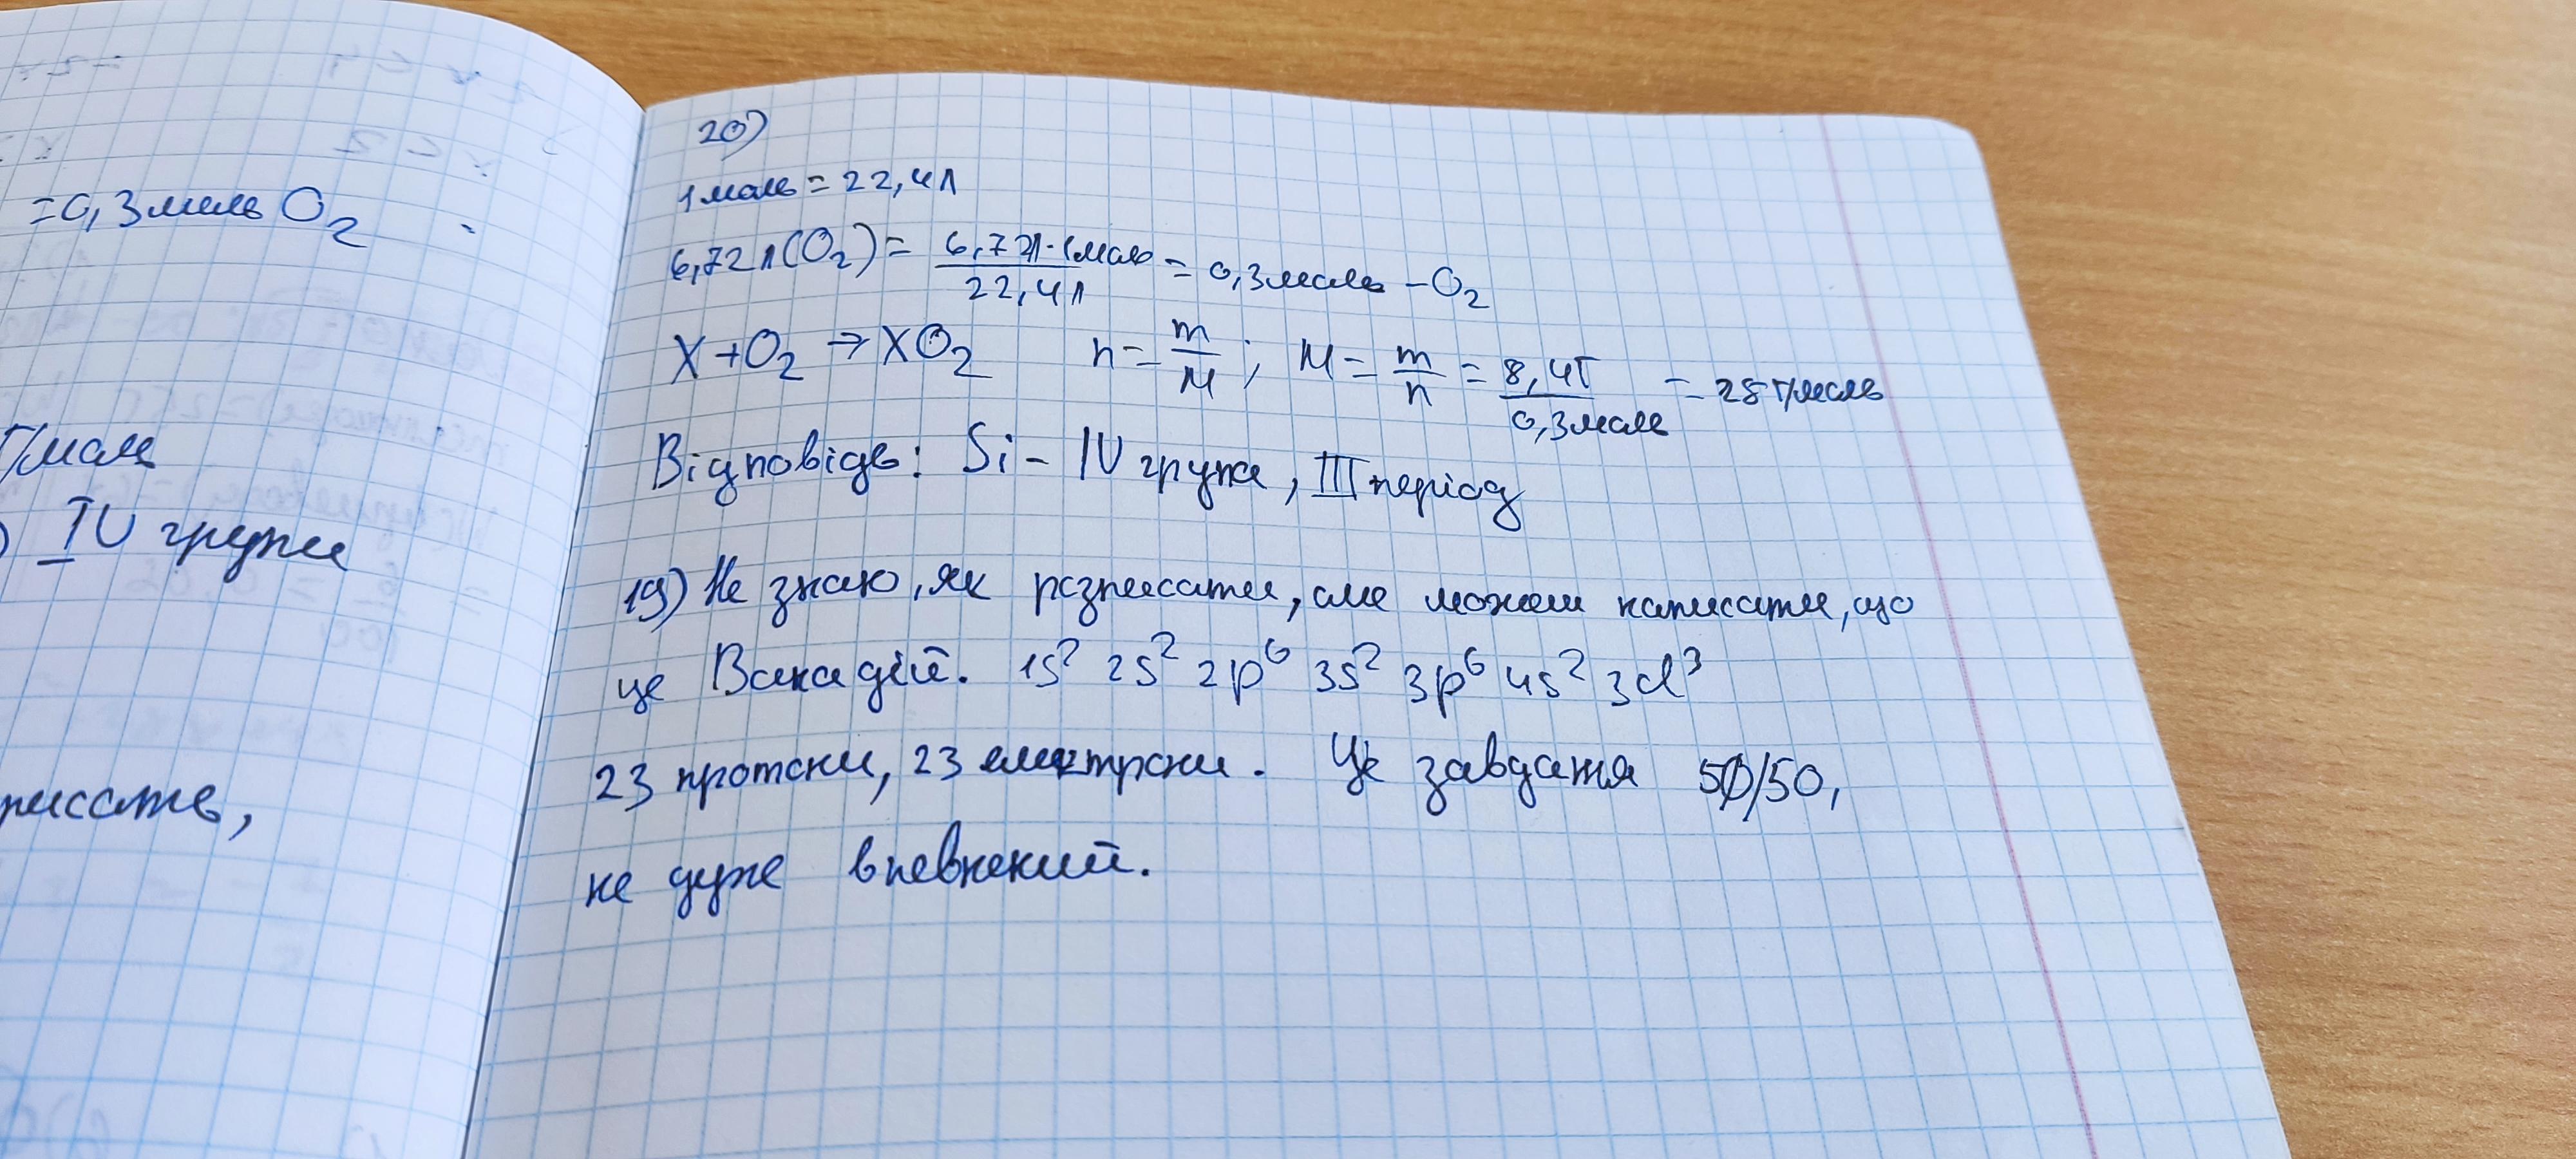 =0,3моль O₂
г/моль
IV групи
писать,
20)
1 моль = 22,4л
6,72л(O₂) = 6,72л·1моль / 22,4л = 0,3моль - O₂
X + O₂ → XO₂ n = m/M ; M = m/n = 8,4г / 0,3моль = 28 г/моль
Відповідь: Si - IV група, III період
19) Не знаю, як розписати, але можеш написати, що
це Ванадій. 1s² 2s² 2p⁶ 3s² 3p⁶ 4s² 3d³
23 протони, 23 електрони. Це завдання 50/50,
не дуже впевнений.